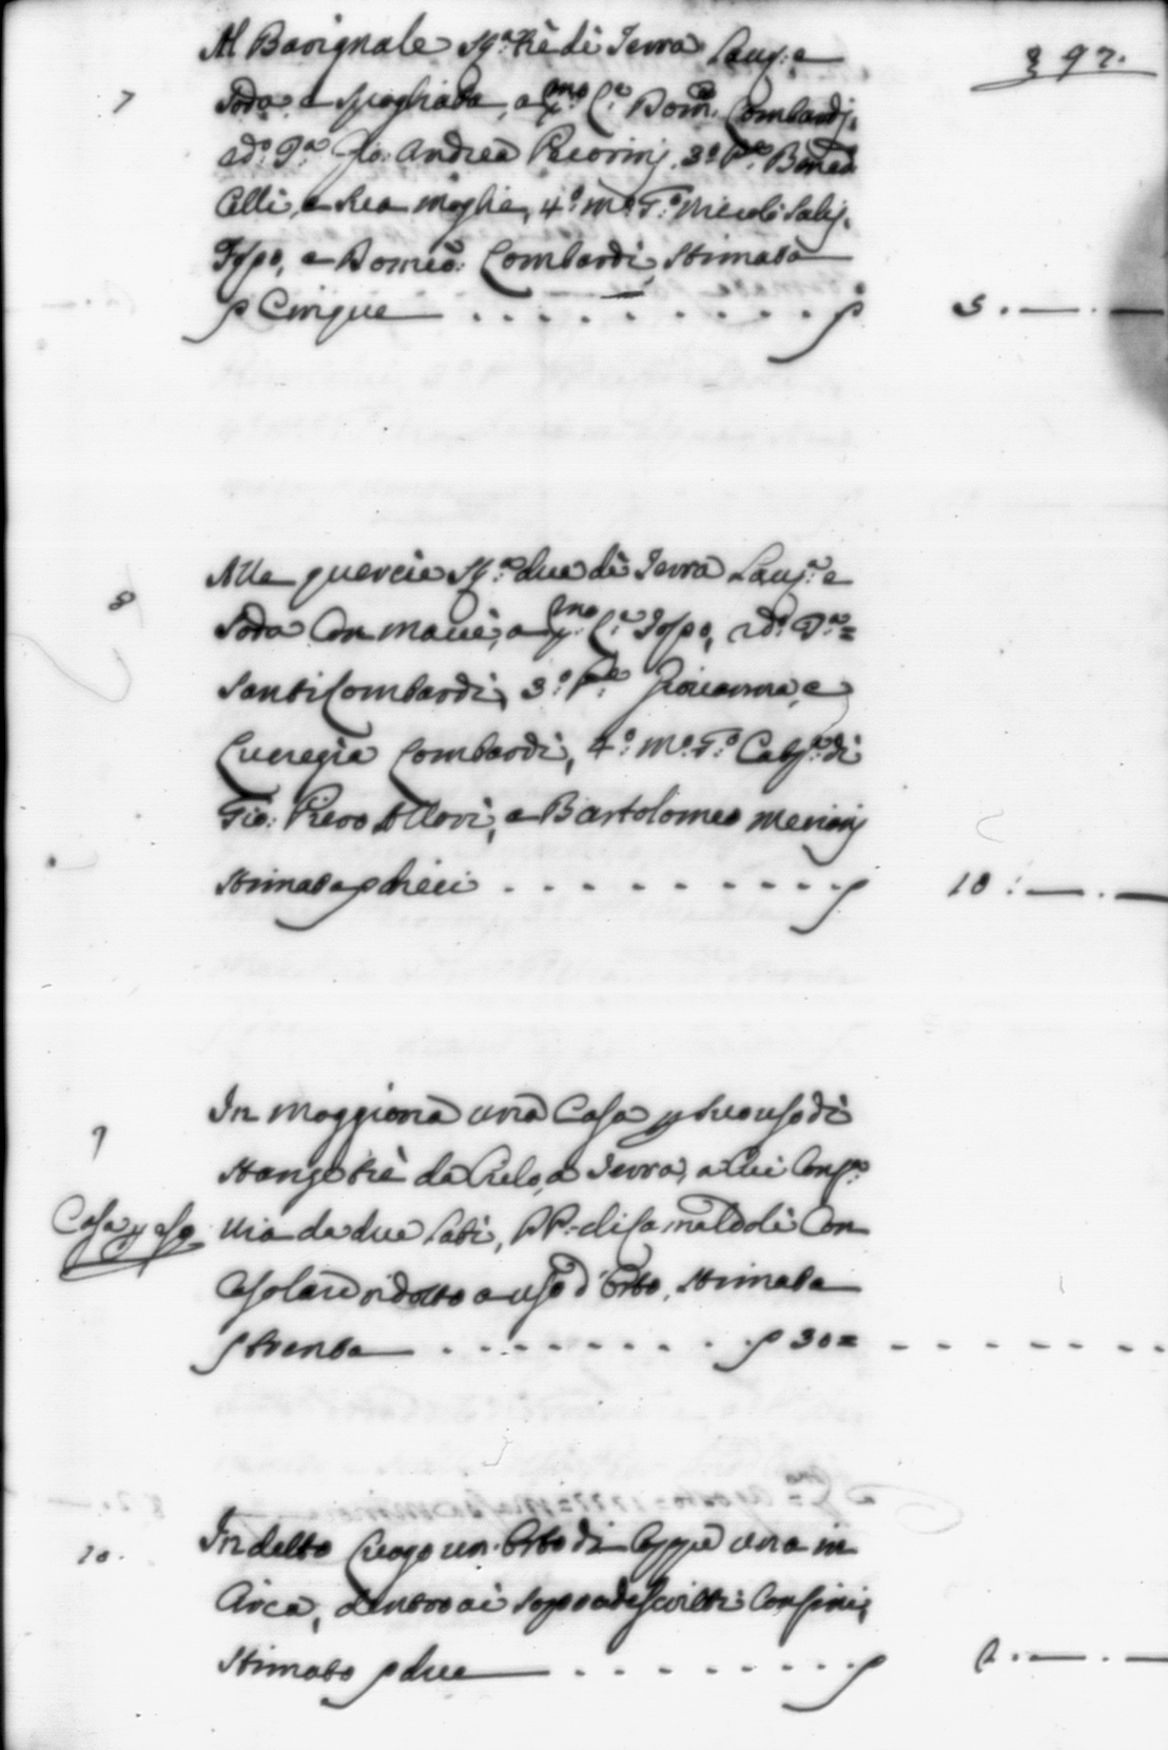 397.
7
Al Bavignale St.ª tre di Terra Lau: e
Soda e Spogliata, a pmo C.e Dom.co Lombardi,
2do D.ª Gio: Andrea Pecorinj, 3º P.e Bened.
Celli, e sua moglie, 4º Mº Tº Niccolò
Fosso, e Domco: Lombardi, Stimata
p Cinque . . . . . . . . . . p 5. — . —
8
Alle quercie St.ª due di Terra Lau.ª e
Soda Con macìe, a pmo C.e Fosso, 2do D.ª =
Santi Lombardi, 3º P.e Giovanna, e
Lucregia Lombardi, 4º Mº Tº di
Gio: Piero Allori, e Bartolomeo
Stimata p dieci . . . . . . . . . . p 10 : — . —
9
Casa p uso
In Moggiona una Casa p suo uso di
Stanze tre da Cielo, a Terra, a Cui Conf.ª
Via da due Lati, PP. di Camaldoli Con
Casolare ridotto a uso d'Orto, Stimata
p trenta . . . . . . . . p 30 = . . . . . .
10.
In detto Luogo un Orto di Coppe una in
Circa, dentro ai sopradescritti Confini,
Stimato p due — . . . . . . . . p 2. — . —